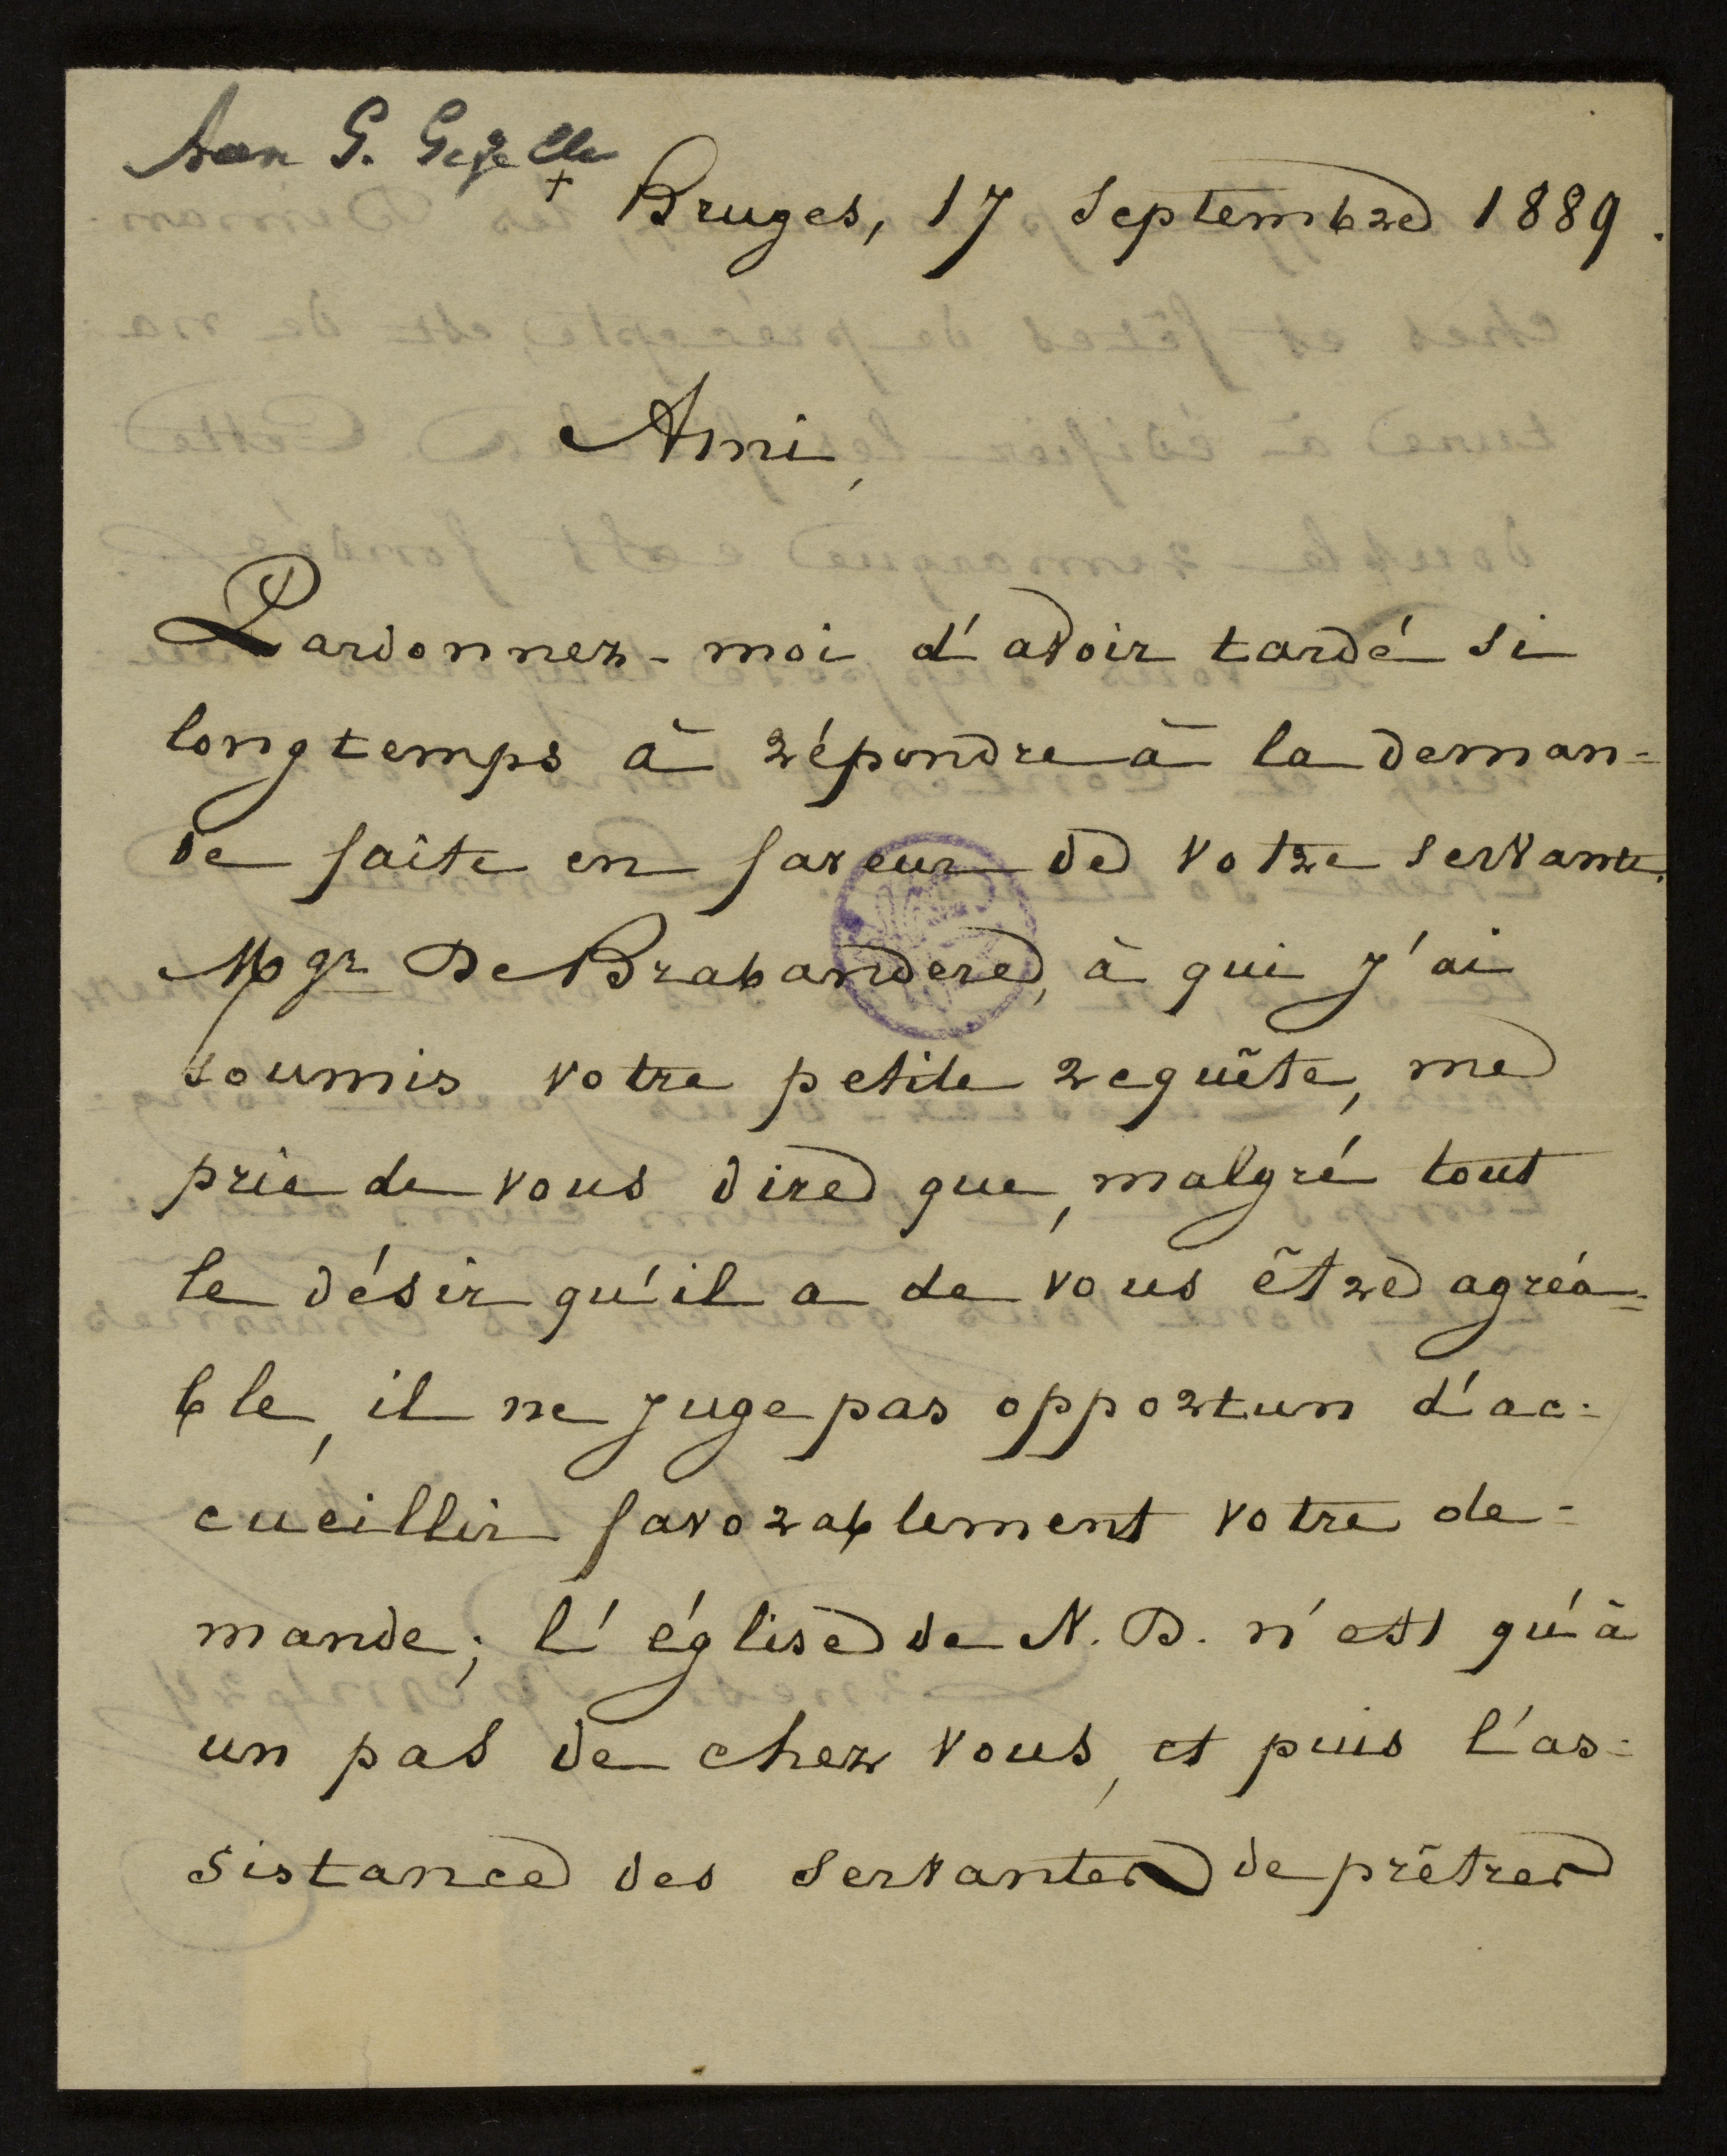 Aan G. Gezelle
+ Bruges, 17 Septembre 1889.
Ami,
Pardonnez-moi d'avoir tardé si
longtemps à répondre à la deman=
de faîte en faveur de votre servante.
Mgr De Brabandere, à qui j'ai
soumis votre petite requête, me
prie de vous dire que, malgré tout
le désir qu'il a de vous être agréa=
ble, il ne juge pas opportun d'ac=
cueillir favorablement votre de=
mande; l'église de N. D. n'est qu'à
un pas de chez vous, et puis l'as=
sistance des servantes de prêtres